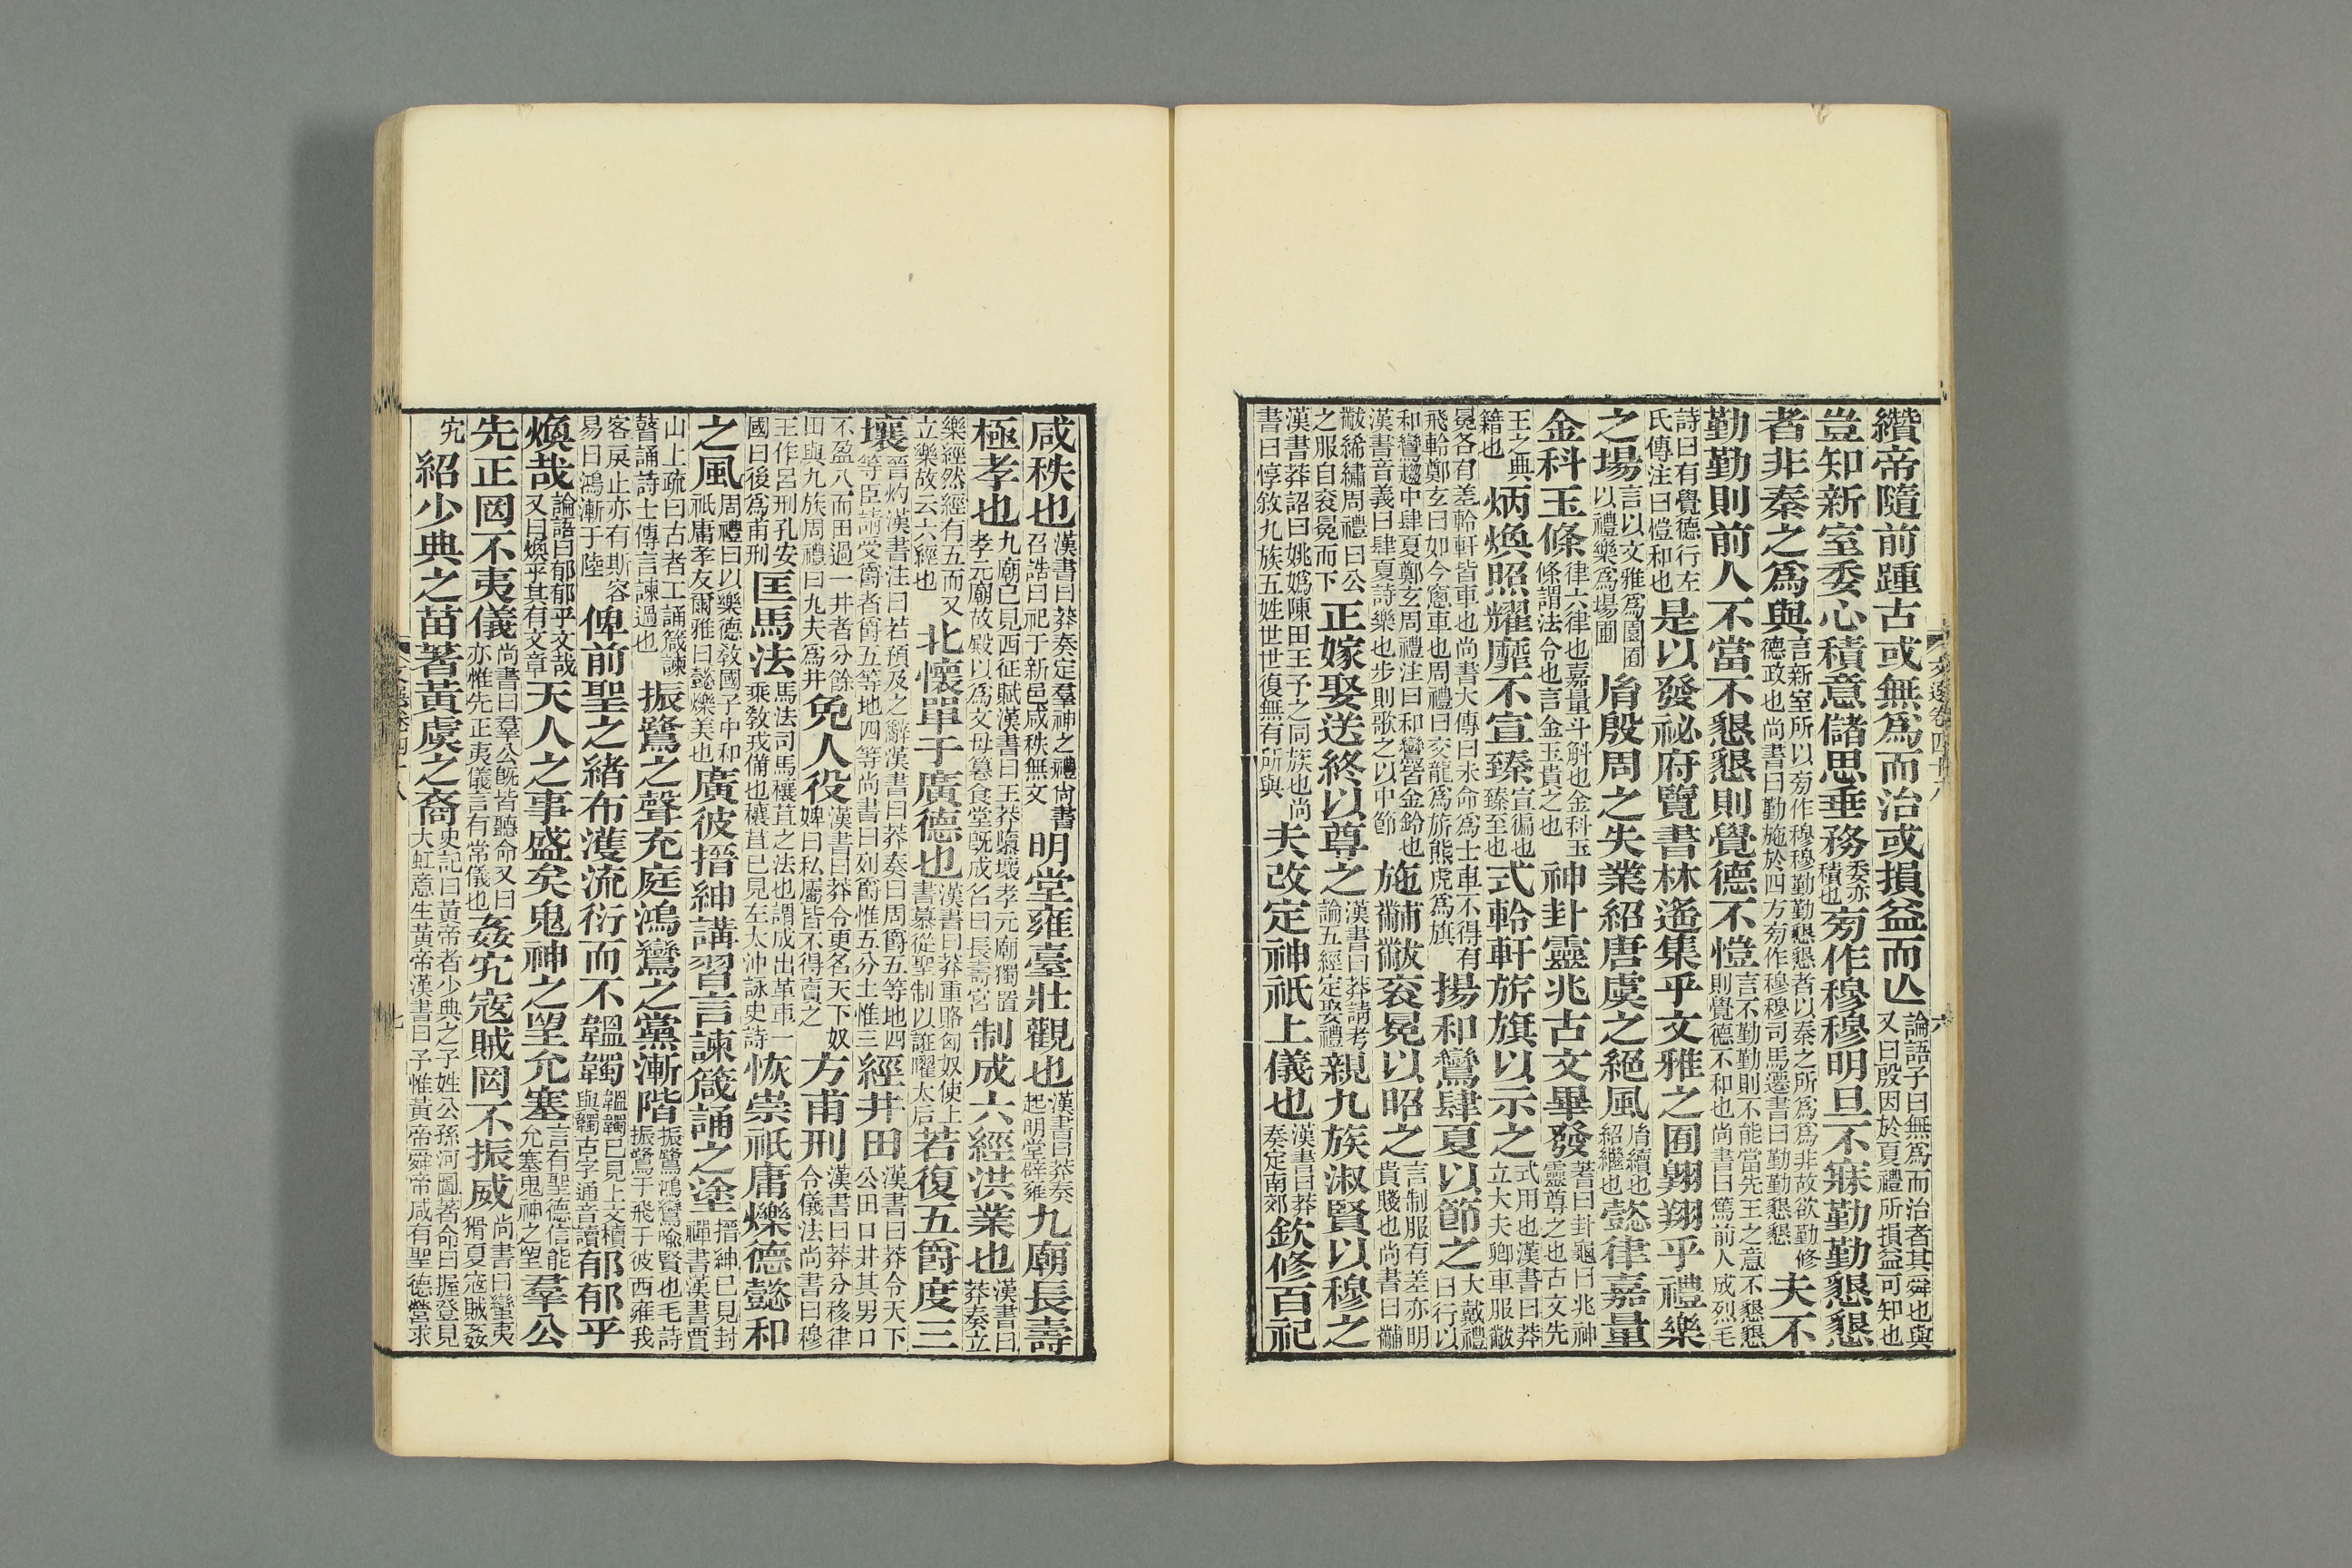 纘帝隨前踵古或無爲而治或損益而亾論語子曰無爲而治者其舜也與又曰殷因於夏禮所損益可知也
豈知新室委心積意儲思垂務委亦積也旁作穆穆明旦不寐勤勤懇懇
者非秦之爲與言新室所以旁作穆穆勤勤懇懇者以秦之所爲爲非故欲勤修德政也尚書曰勤施於四方旁作穆穆司馬遷書曰勤勤懇懇夫不
勤勤則前人不當不懇懇則覺德不愷言不勤勤則不能當先王之意不懇懇則覺德不和也尚書曰篤前人成烈毛
詩曰有覺德行左氏傳注曰愷和也是以發祕府覽書林遙集乎文雅之囿翺翔乎禮樂
之場言以文雅爲園囿以禮樂爲場圃㣧殷周之失業紹唐虞之絕風㣧續也紹繼也懿律嘉量
金科玉條律六律也嘉量斗斛也金科玉條謂法令也言金玉貴之也神卦靈兆古文畢發著曰卦龜曰兆神靈尊之也古文先
王之典籍也炳煥照耀靡不宣臻宣徧也臻至也式軨軒旂旗以示之式用也漢書曰莽立大夫卿車服黻
冕各有差軨軒皆車也尚書大傳曰未命爲士車不得有飛軨鄭玄曰如今窻車也周禮曰交龍爲旂熊虎爲旗揚和鸞肆夏以節之大戴禮曰行以
和鸞趨中肆夏鄭玄周禮注曰和鸞皆金鈴也漢書音義曰肆夏詩樂也步則歌之以中節施黼黻衮冕以昭之言制服有差亦明貴賤也尚書曰黼
黻絺繡周禮曰公之服自衮冕而下正嫁娶送終以尊之漢書曰莽請考論五經定娶禮親九族淑賢以穆之
漢書莽詔曰姚嬀陳田王予之同族也尚書曰惇敘九族五姓世世復無有所與夫改定神祇上儀也漢書曰莽奏定南郊欽修百祀
咸秩也漢書曰莽奏定羣神之禮尚書召誥曰祀于新邑咸秩無文明堂雍臺壯觀也漢書曰莽奏起明堂辟雍九廟長壽
極孝也九廟已見西征賦漢書曰王莽隳壞孝元廟獨置孝元廟故殿以爲文母篹食堂旣成名曰長壽宮制成六經洪業也漢書曰莽奏立
樂經然經有五而又立樂故云六經也北懷單于廣德也漢書曰莽重賂匈奴使上書慕從聖制以誑耀太后若復五爵度三
壤晉灼漢書注曰若預及之辭漢書曰莽奏曰周爵五等地四等臣請受爵者爵五等地四等尚書曰列爵惟五分土惟三經井田漢書曰莽令天下公田口井其男口
不盈八而田過一井者分餘田與九族周禮曰九夫爲井免人役漢書曰莽令更名天下奴婢曰私屬皆不得賣之方甫刑漢書曰莽分移律令儀法尚書曰穆
王作呂刑孔安國曰後爲甫刑匡馬法馬法司馬穰苴之法也謂成出革車一乘教戎備也穰苴已見左太沖詠史詩恢崇祇庸爍德懿和
之風周禮曰以樂德敎國子中和祇庸孝友爾雅曰懿爍美也廣彼搢紳講習言諫箴誦之塗搢紳已見封禪書漢書賈
山上疏曰古者工誦箴諫瞽誦詩士傳言諫過也振鷺之聲充庭鴻鸞之黨漸階振鷺鴻鸞喩賢也毛詩振鷺于飛于彼西雍我
客戾止亦有斯容易曰鴻漸于陸俾前聖之緒布濩流衍而不韞韣韞韣已見上文櫝與韣古字通音讀郁郁乎
煥哉論語曰郁郁乎文哉又曰煥乎其有文章天人之事盛矣鬼神之朢允塞言有聖德信能允塞鬼神之朢羣公
先正罔不夷儀尚書曰羣公旣皆聽命又曰亦惟先正夷儀言有常儀也姦宄寇賊罔不振威尚書曰蠻夷猾夏寇賊姦
宄紹少典之苗著黃虞之裔史記曰黃帝者少典之子姓公孫河圖著命曰握登見大虹意生黃帝漢書曰予惟黃帝舜帝咸有聖德營求
文選卷四十八
六
七